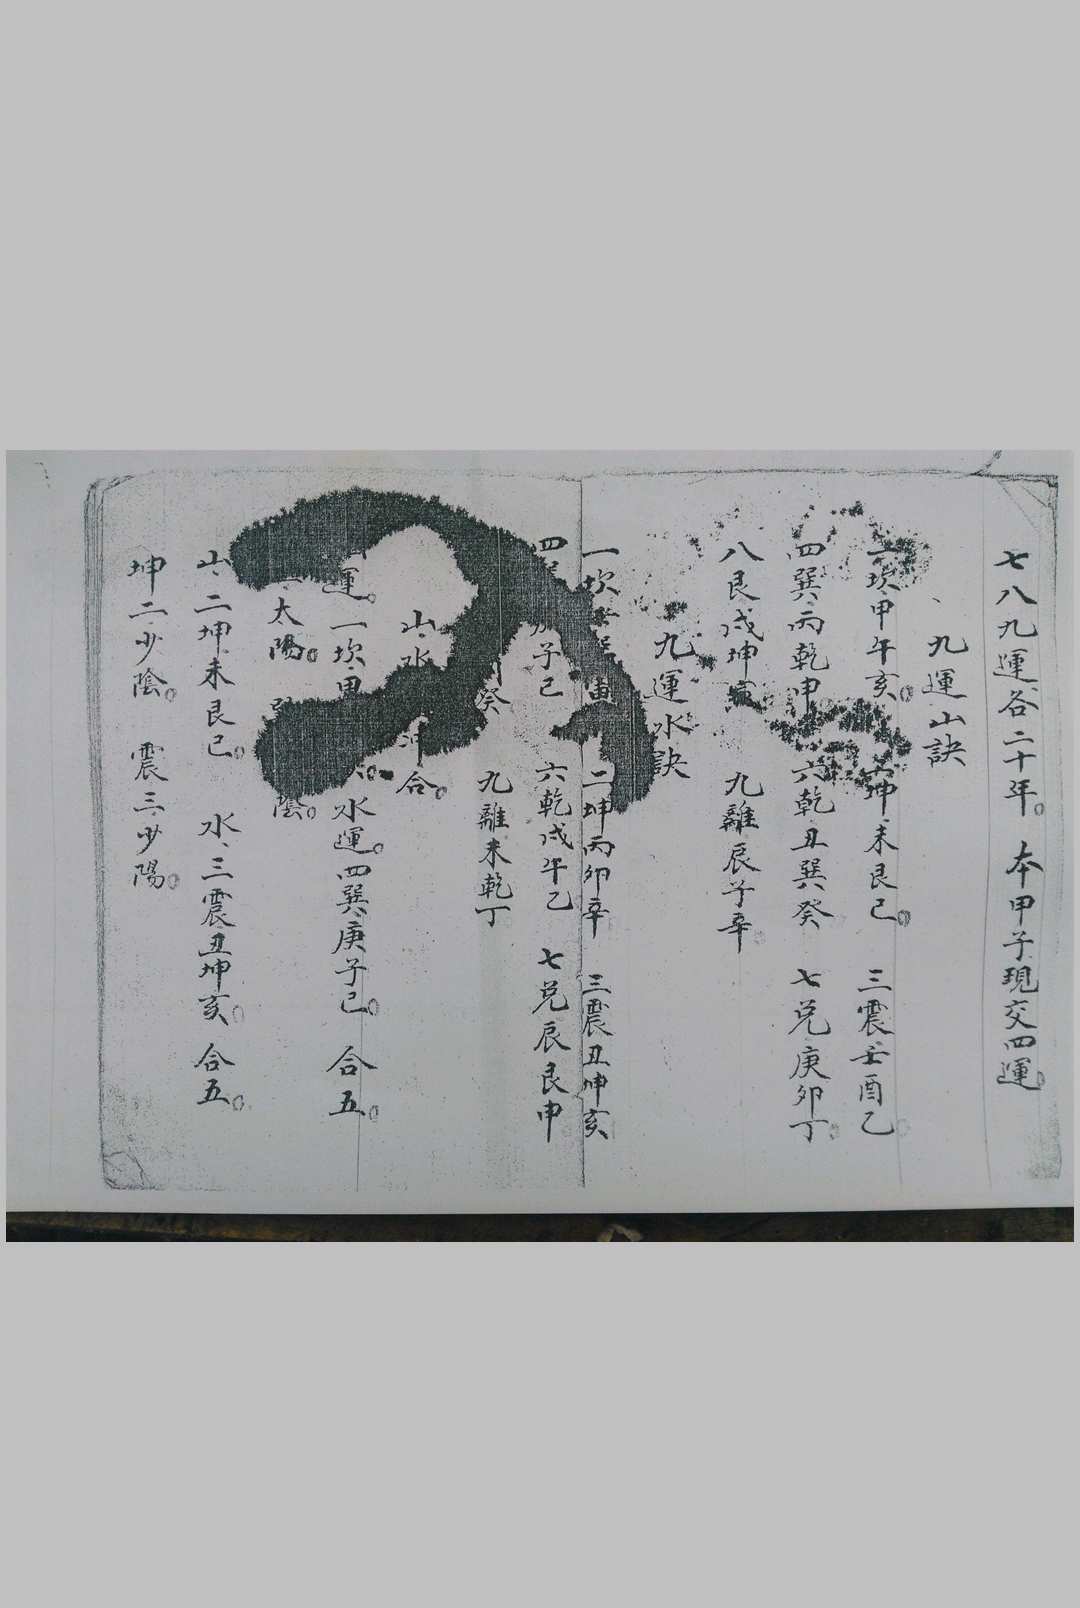 七八九運各二十年。本甲子現交四運。
九運山訣
一坎甲午亥。二坤未艮己。三震壬酉乙
四巽丙乾申 六乾丑巽癸 七兌庚卯丁
八艮戌坤寅 九離辰子辛
九運水訣
一坎 寅 二坤丙卯辛 三震丑坤亥
四 子己 六乾戌午乙 七兌辰艮申
癸 九離未乾丁
山水 合。
運。一坎甲 水運。四巽庚子己。合五。
太陽。 陰。
山、二坤未艮己。水、三震丑坤亥。合五。
坤二少陰。震三少陽。